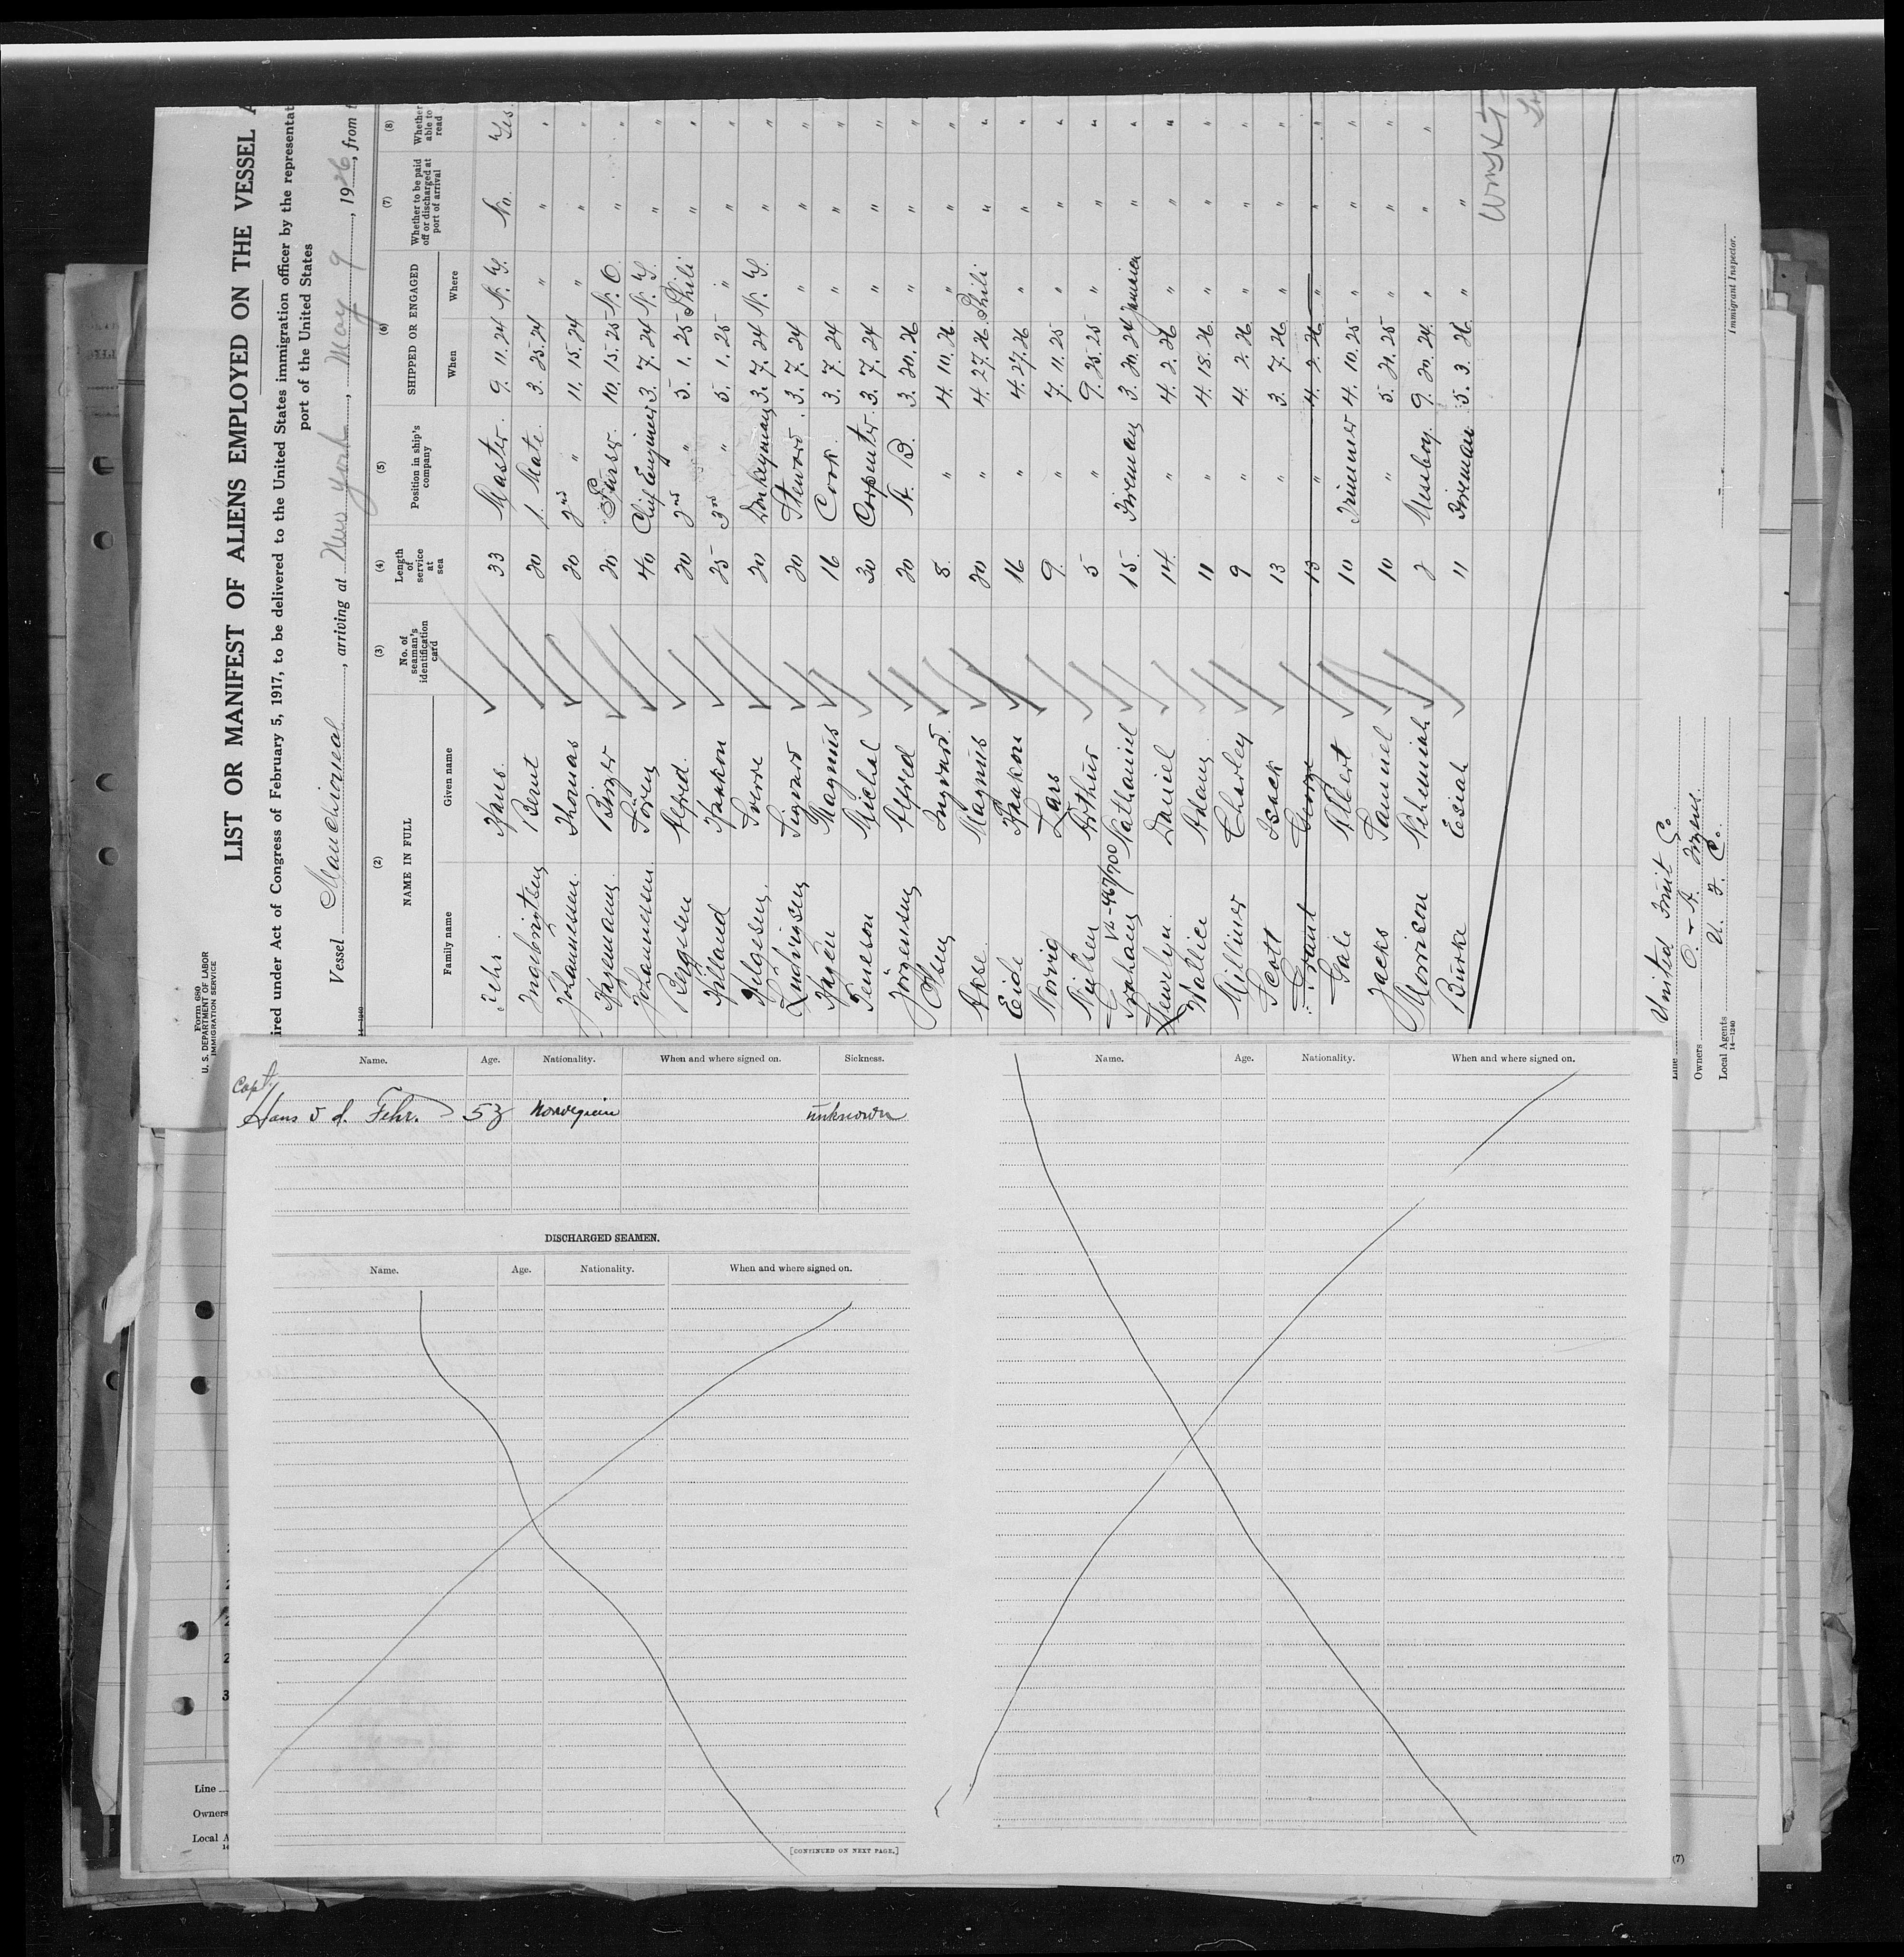 Form 680
U. S. DEPARTMENT OF LABOR
IMMIGRATION SERVICE
LIST OR MANIFEST OF ALIENS EMPLOYED ON THE VESSEL A
ired under Act of Congress of February 5, 1917, to be delivered to the United States immigration officer by the representat
port of the United States
Vessel Manchioneal, arriving at New York, May 9, 1926, from
(2) (3) (4) (5) (6) (7) (8)
NAME IN FULL No. of seaman's identification card Length of service at sea Position in ship's company SHIPPED OR ENGAGED Whether to be paid off or discharged at port of arrival Whether able to read
Family name Given name When Where
Fehr. Hans. 33 Master. 9. 11. 24 N. Y. No. Yes.
Ingebrigtsen Bernt 20 1. Mate. 3. 25. 24 " " "
Johannessen. Thomas 20 2nd " 11. 15. 24 " " "
Hagemann. Birger 20 Purser. 10. 15. 25 N. O. " "
Johannessen. Sören 40 Chief Engineer 3. 7. 24 N. Y. " "
Bergesen Alfred 20 2nd " 5. 1. 25 Phili " "
Helland Haakon 25 3rd " 5. 1. 25 " " "
Helgesen. Sverre 20 Donkeyman 3. 7. 24 N. Y. " "
Ludvigsen Sigvard 20 Steward. 3. 7. 24 " " "
Hagen Magnus 16 Cook. 3. 7. 24 " " "
Teneson Michal 30 Carpenter. 3. 7. 24 " " "
Jörgensen Alfred 20 A. B. 3. 30. 26 " " "
Olsen Ingvard. 8. " 4. 10. 26. " " "
Akse. Magnus 20 " 4. 27. 26. Phili " "
Eide Haakon 16 " 4. 27. 26 " " "
Norvig Lars 9. " 7. 11. 25 " " "
Nielsen Arthur 5 " 9. 25. 25 " " "
Graham Nathaniel 15. Fireman 3. 30. 24 Jamaica " "
Llewelyn. Daniel 14. " 4. 2. 26 " " "
Wallice Adam 11 " 4. 18. 26. " " "
Milliner Charley 9 " 4. 2. 26 " " "
Scott Isack 13 " 3. 7. 26 " " "
Grant George 13 " 4. 2. 26 " " "
Gale Albert 10 Trimmer 4. 10. 25 " " "
Jacks Samuel 10 " 5. 21. 25 " " "
Morrison Nehemiah 2 Messboy. 9. 20. 24. " " "
Burke Esiah 11 Fireman 5. 3. 26. " "
Immigrant Inspector.
Line United Fruit Co
Owners
Local Agents U. F. Co.
14—1240
Name. Age. Nationality. When and where signed on. Sickness.
Capt.
Hans v d. Fehr. 53 Norwegian unknown
DISCHARGED SEAMEN.
Name. Age. Nationality. When and where signed on.
[CONTINUED ON NEXT PAGE.]
Name. Age. Nationality. When and where signed on.
Line
Owners
Local A
(7)